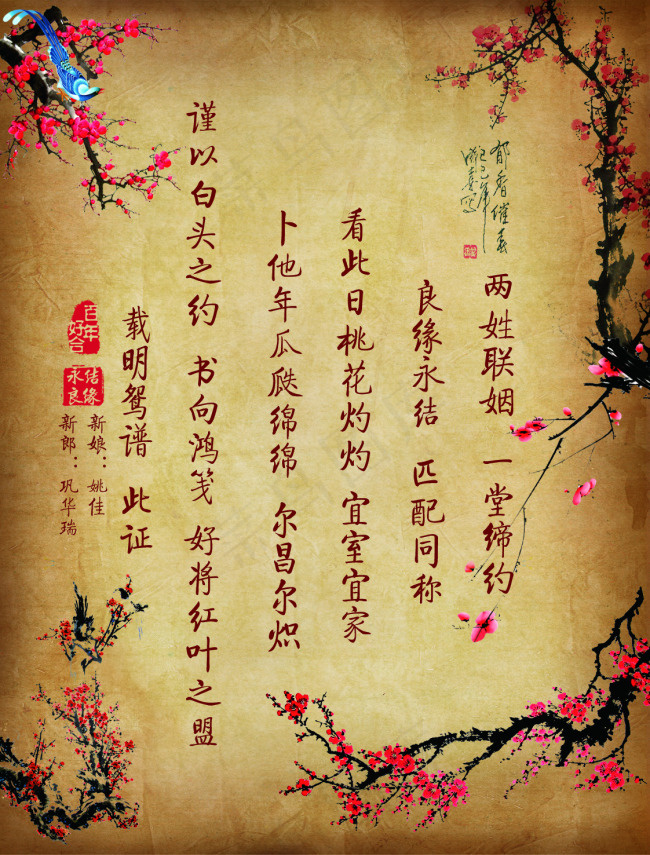 两姓联姻 一堂缔约
良缘永结 匹配同称
看此日桃花灼灼 宜室宜家
卜他年瓜瓞绵绵 尔昌尔炽
谨以白头之约 书向鸿笺 好将红叶之盟
载明鸳谱 此证
新娘：姚佳
新郎：巩华瑞
百年好合
永结良缘